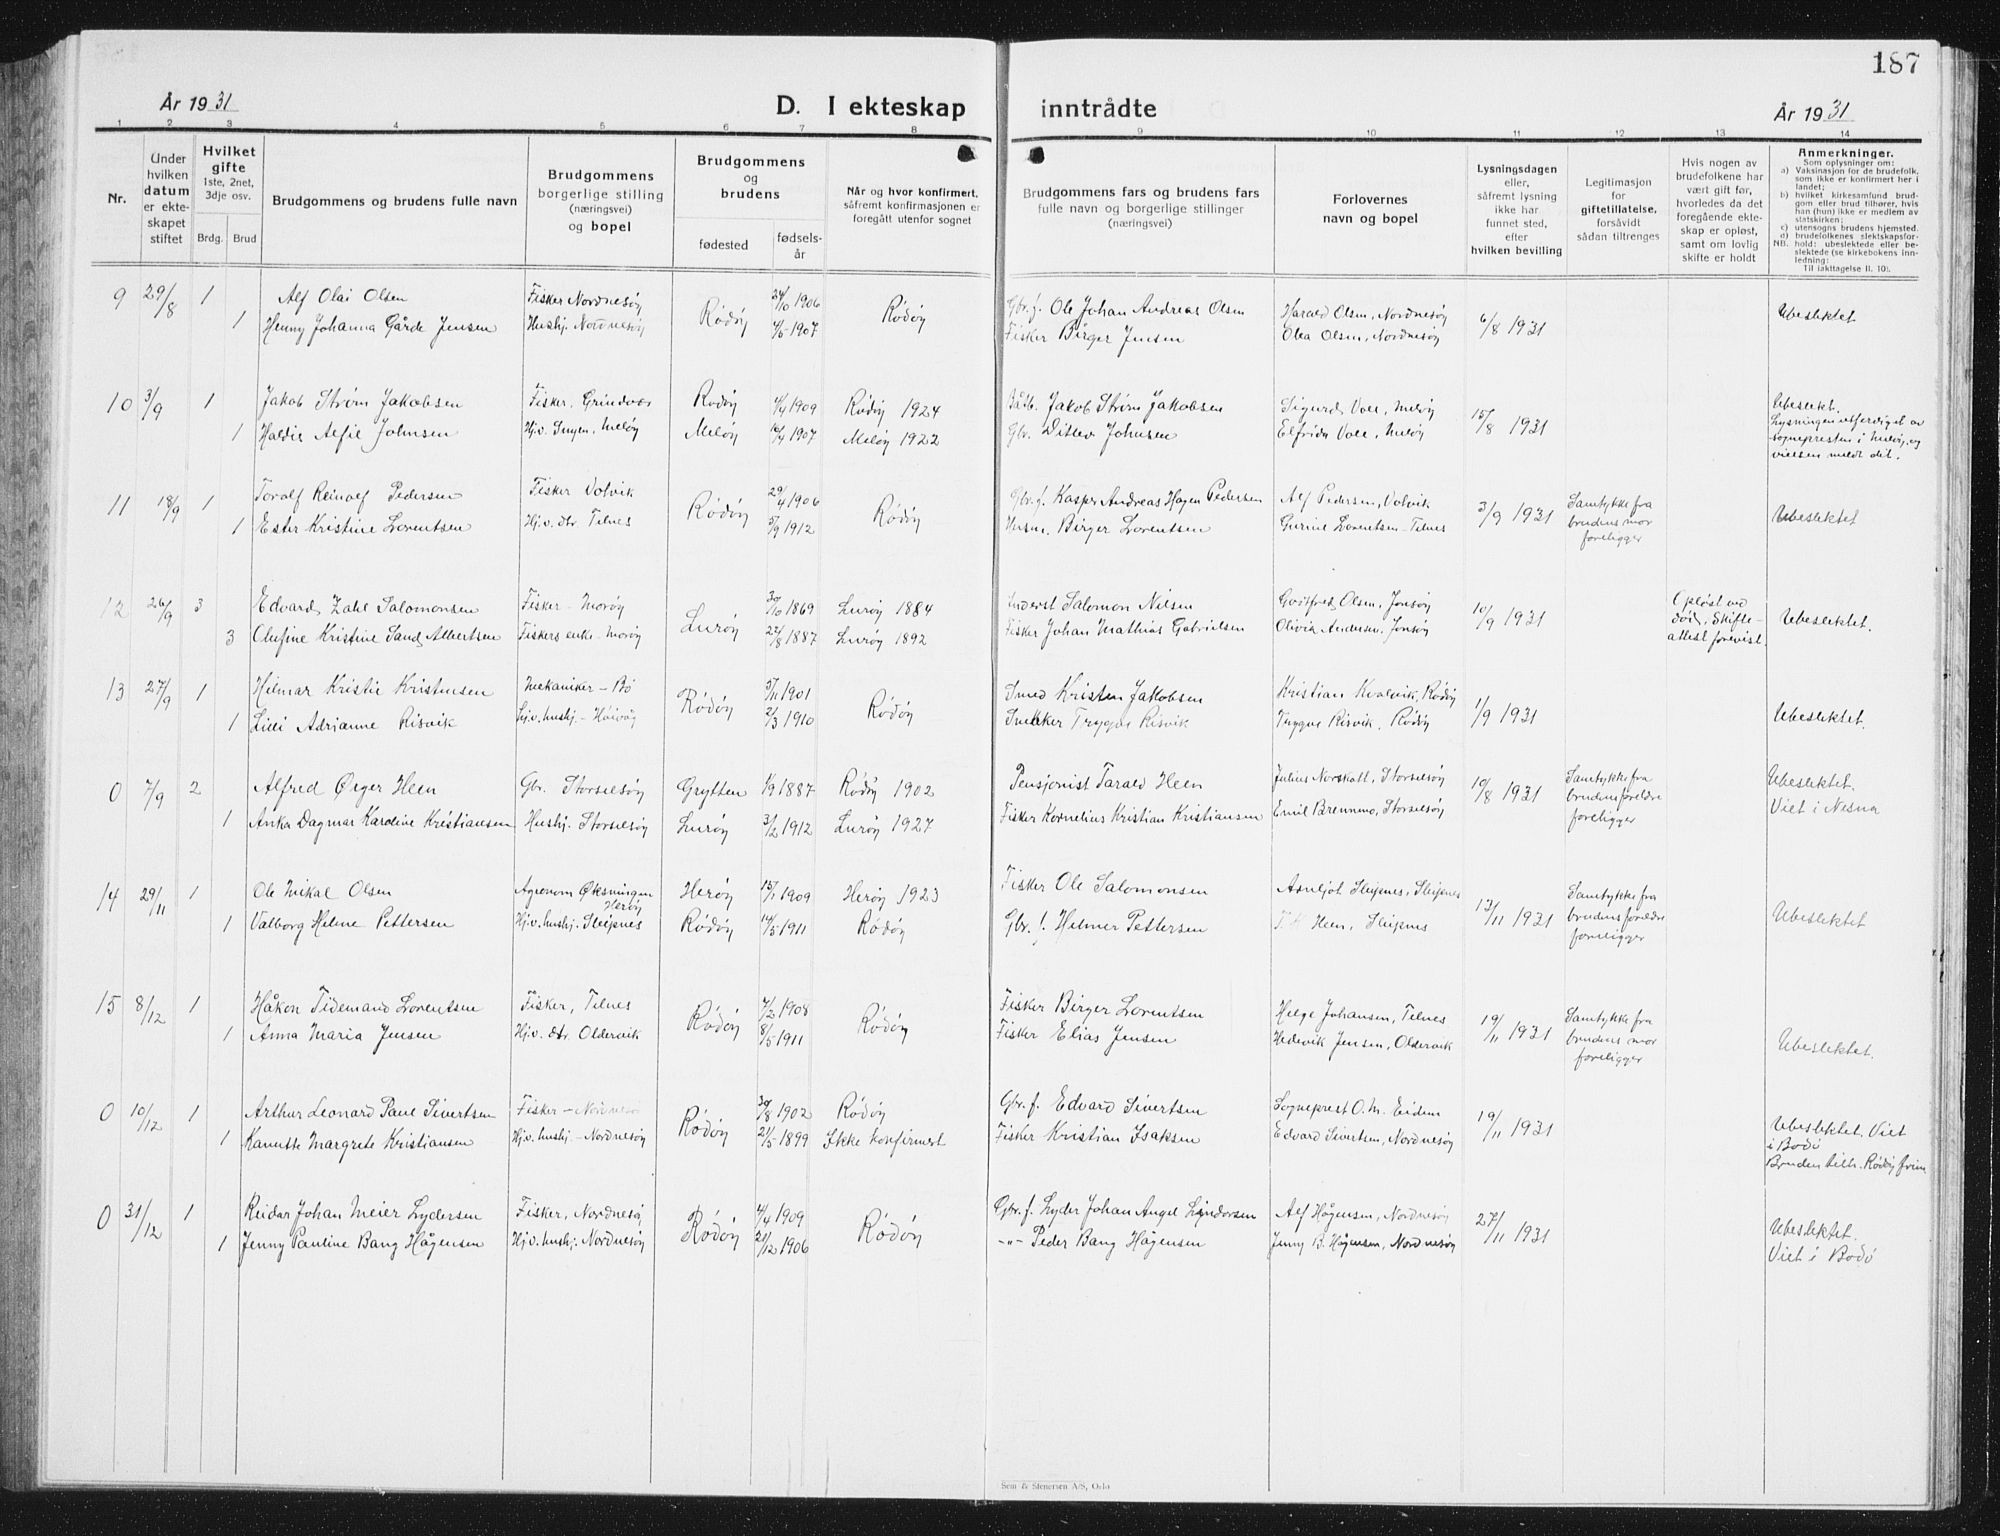 187
År 1931
D. I ekteskap inntrådte
År 1931
1 2 3 4 5 6 7 8 9 10 11 12 13 14
Nr.
Under
hvilken
datum
er ekte-
skapet
stiftet
Hvilket
gifte
1ste, 2net,
3dje osv.
Brdg. Brud
Brudgommens og brudens fulle navn
Brudgommens
borgerlige stilling
(næringsvei)
og bopel
Brudgommens
og
brudens
fødested
fødsels-
år
Når og hvor konfirmert,
såfremt konfirmasjonen er
foregått utenfor sognet
Brudgommens fars og brudens fars
fulle navn og borgerlige stillinger
(næringsvei)
Forlovernes
navn og bopel
Lysningsdagen
eller,
såfremt lysning
ikke har
funnet sted,
efter
hvilken bevilling
Legitimasjon
for
giftetillatelse,
forsåvidt
sådan tiltrenges
Hvis nogen av
brudefolkene har
vært gift før,
hvorledes da det
foregående ekte-
skap er opløst,
samt om lovlig
skifte er holdt
Anmerkninger.
Som oplysninger om:
a) Vaksinasjon for de brudefolk,
som ikke er konfirmert her i
landet;
b) hvilket kirkesamfund brud-
gom eller brud tilhører, hvis
han (hun) ikke er medlem av
statskirken;
c) utensogns brudens hjemsted.
d) brudefolkenes slektskapsfor-
NB. hold: ubeslektede eller be-
slektede (se kirkebokens inn-
ledning:
Til iakttagelse II. 10).
9 29/8 1 Alf Olai Olsen Fisker Nordnesøy Rödöy 24/10 1906 Rödöy Gbr.f. Ole Johan Andreas Olsen Harald Olsen, Nordnesøy 6/8 1931 Ubeslektet
1 Henny Johanna Gårde Jensen Hushj. Nordnesöy 4/5 1907 Fisker Birger Jensen Olea Olsen, Nordnesöy
10 3/9 1 Jakob Strøm Jakobsen Fisker, Rödöy 4/4 1909 Rödöy 1924 Jakob Strøm Jakobsen Sigurd Voll, Melöy 15/8 1931 Ubeslekt.
1 Haldis Alfil Johnsen Hj.v. Melöy Melöy 1907 Melöy 1922 Gbr. Ditlev Johnsen Elfrida Voll, Melöy Lysningen utferdiget av
sognepresten i Melöy, og
vielsen meldt dit.
11 18/9 1 Toralf Reinolf Pedersen Fisker Valvik Rödöy 29/4 1906 Rödöy Gbr.f. Kasper Andreas Hagen Pedersen Alf Pedersen, Valvik 3/9 1931 Samtykke fra
1 Ester Kristine Lorentsen Hj.v. dtr Tilnes 5/9 1912 Husm. Birger Lorentsen Lorentsen - Tilnes brudens mor Ubeslektet
foreligger
12 26/9 3 Edvard Zahl Salomonsen Fisker - Moröy Luröy 30/10 1869 Luröy 1884 Inderst Salomon Nilsen Godtfred Olsen, Jonsöy 10/9 1931 Opløst ved
3 Olufine Kristine Sand Albertsen Fiskers enke - Moröy 22/8 1887 Luröy 1892 Fisker Johan Mathias Gabrielsen Olivia Andersen, Jonsöy död, Skifte- Ubeslektet.
attest forevist.
13 27/9 1 Hilmar Kristie Kristensen Mekaniker - Bö Rödöy 5/11 1901 Rödöy Smed Kristen Jakobsen Kristian Kvalvik, Rödöy 1/9 1931
1 Lilli Adrianne Risvik Hj.v. hushj. - 2/3 1910 Snekker Trygve Risvik Trygve Risvik, Rödöy Ubeslektet.
0 7/9 2 Alfred Ørger Heen Gbr. Storselsöy Grytten 1/9 1887 Rödöy 1902 Pensjonist Tarald Heen Julius Norskott, Storselsöy 10/8 1931 Samtykke fra Ubeslektet.
1 Anka Dagmar Karoline Kristiansen Hushj. Storselsöy Luröy 3/2 1912 Luröy 1927 Fisker Kornelius Kristian Kristiansen Emil Brennmo, Storselsöy brudens foreldre Viet i Nesna
foreligger
14 29/11 1 Ole Mikal Olsen Agronom Øksningen Herøy Heröy 15/1 1909 Heröy 1923 Fisker Ole Salomonsen Arnljot Sleipnes, Sleipnes 13/11 1931 Samtykke fra
1 Valborg Helene Pettersen Hj.v. hushj. Sleipnes Rödöy 14/5 1911 Rödöy Gbr. f. Helmer Pettersen Heen, Sleipnes brudens foreldre Ubeslektet
foreligger
15 8/12 1 Håkon Tidemand Lorentsen Fisker, Tilnes Rödöy 7/2 1908 Rödöy Fisker Birger Lorentsen Helge Johansen, Tilnes 19/11 1931 Samtykke fra
1 Anna Maria Jensen Hj.v. dtr. Oldervik 8/5 1911 Fisker Elias Jensen Hedevik Jensen, Oldervik brudens mor Ubeslektet.
foreligger
0 10/12 1 Arthur Leonard Paul Sivertsen Fisker - Nordnesöy Rödöy 30/8 1902 Rödöy Gbr. f. Edvard Sivertsen Sogneprest O.M. Eidem 19/11 1931
1 Kanutte Margrete Kristiansen Hj.v. hushj. - Nordnesöy 21/5 1899 Ikke konfirmert Fisker Kristian Isaksen Edvard Sivertsen, Nordnesöy Ubeslektet. Viet
i Bodö
Bruden tilh. Rödöy frim
0 31/12 1 Reidar Johan Meier Lydersen Fisker, Nordnesöy Rödöy 4/4 1909 Rödöy Gbr. f. Lyder Johan Angel Lyndorsen Alf Hågensen, Nordnesöy 27/11 1931 Ubeslektet.
1 Jenny Pauline Bang Hågensen Hj.v. hushj. Nordnesöy 21/12 1906 -"- Peder Bang Hågensen Jenny B. Hågensen, Nordnesöy Viet i Bodö
Sem & Stenersen A/S, Oslo